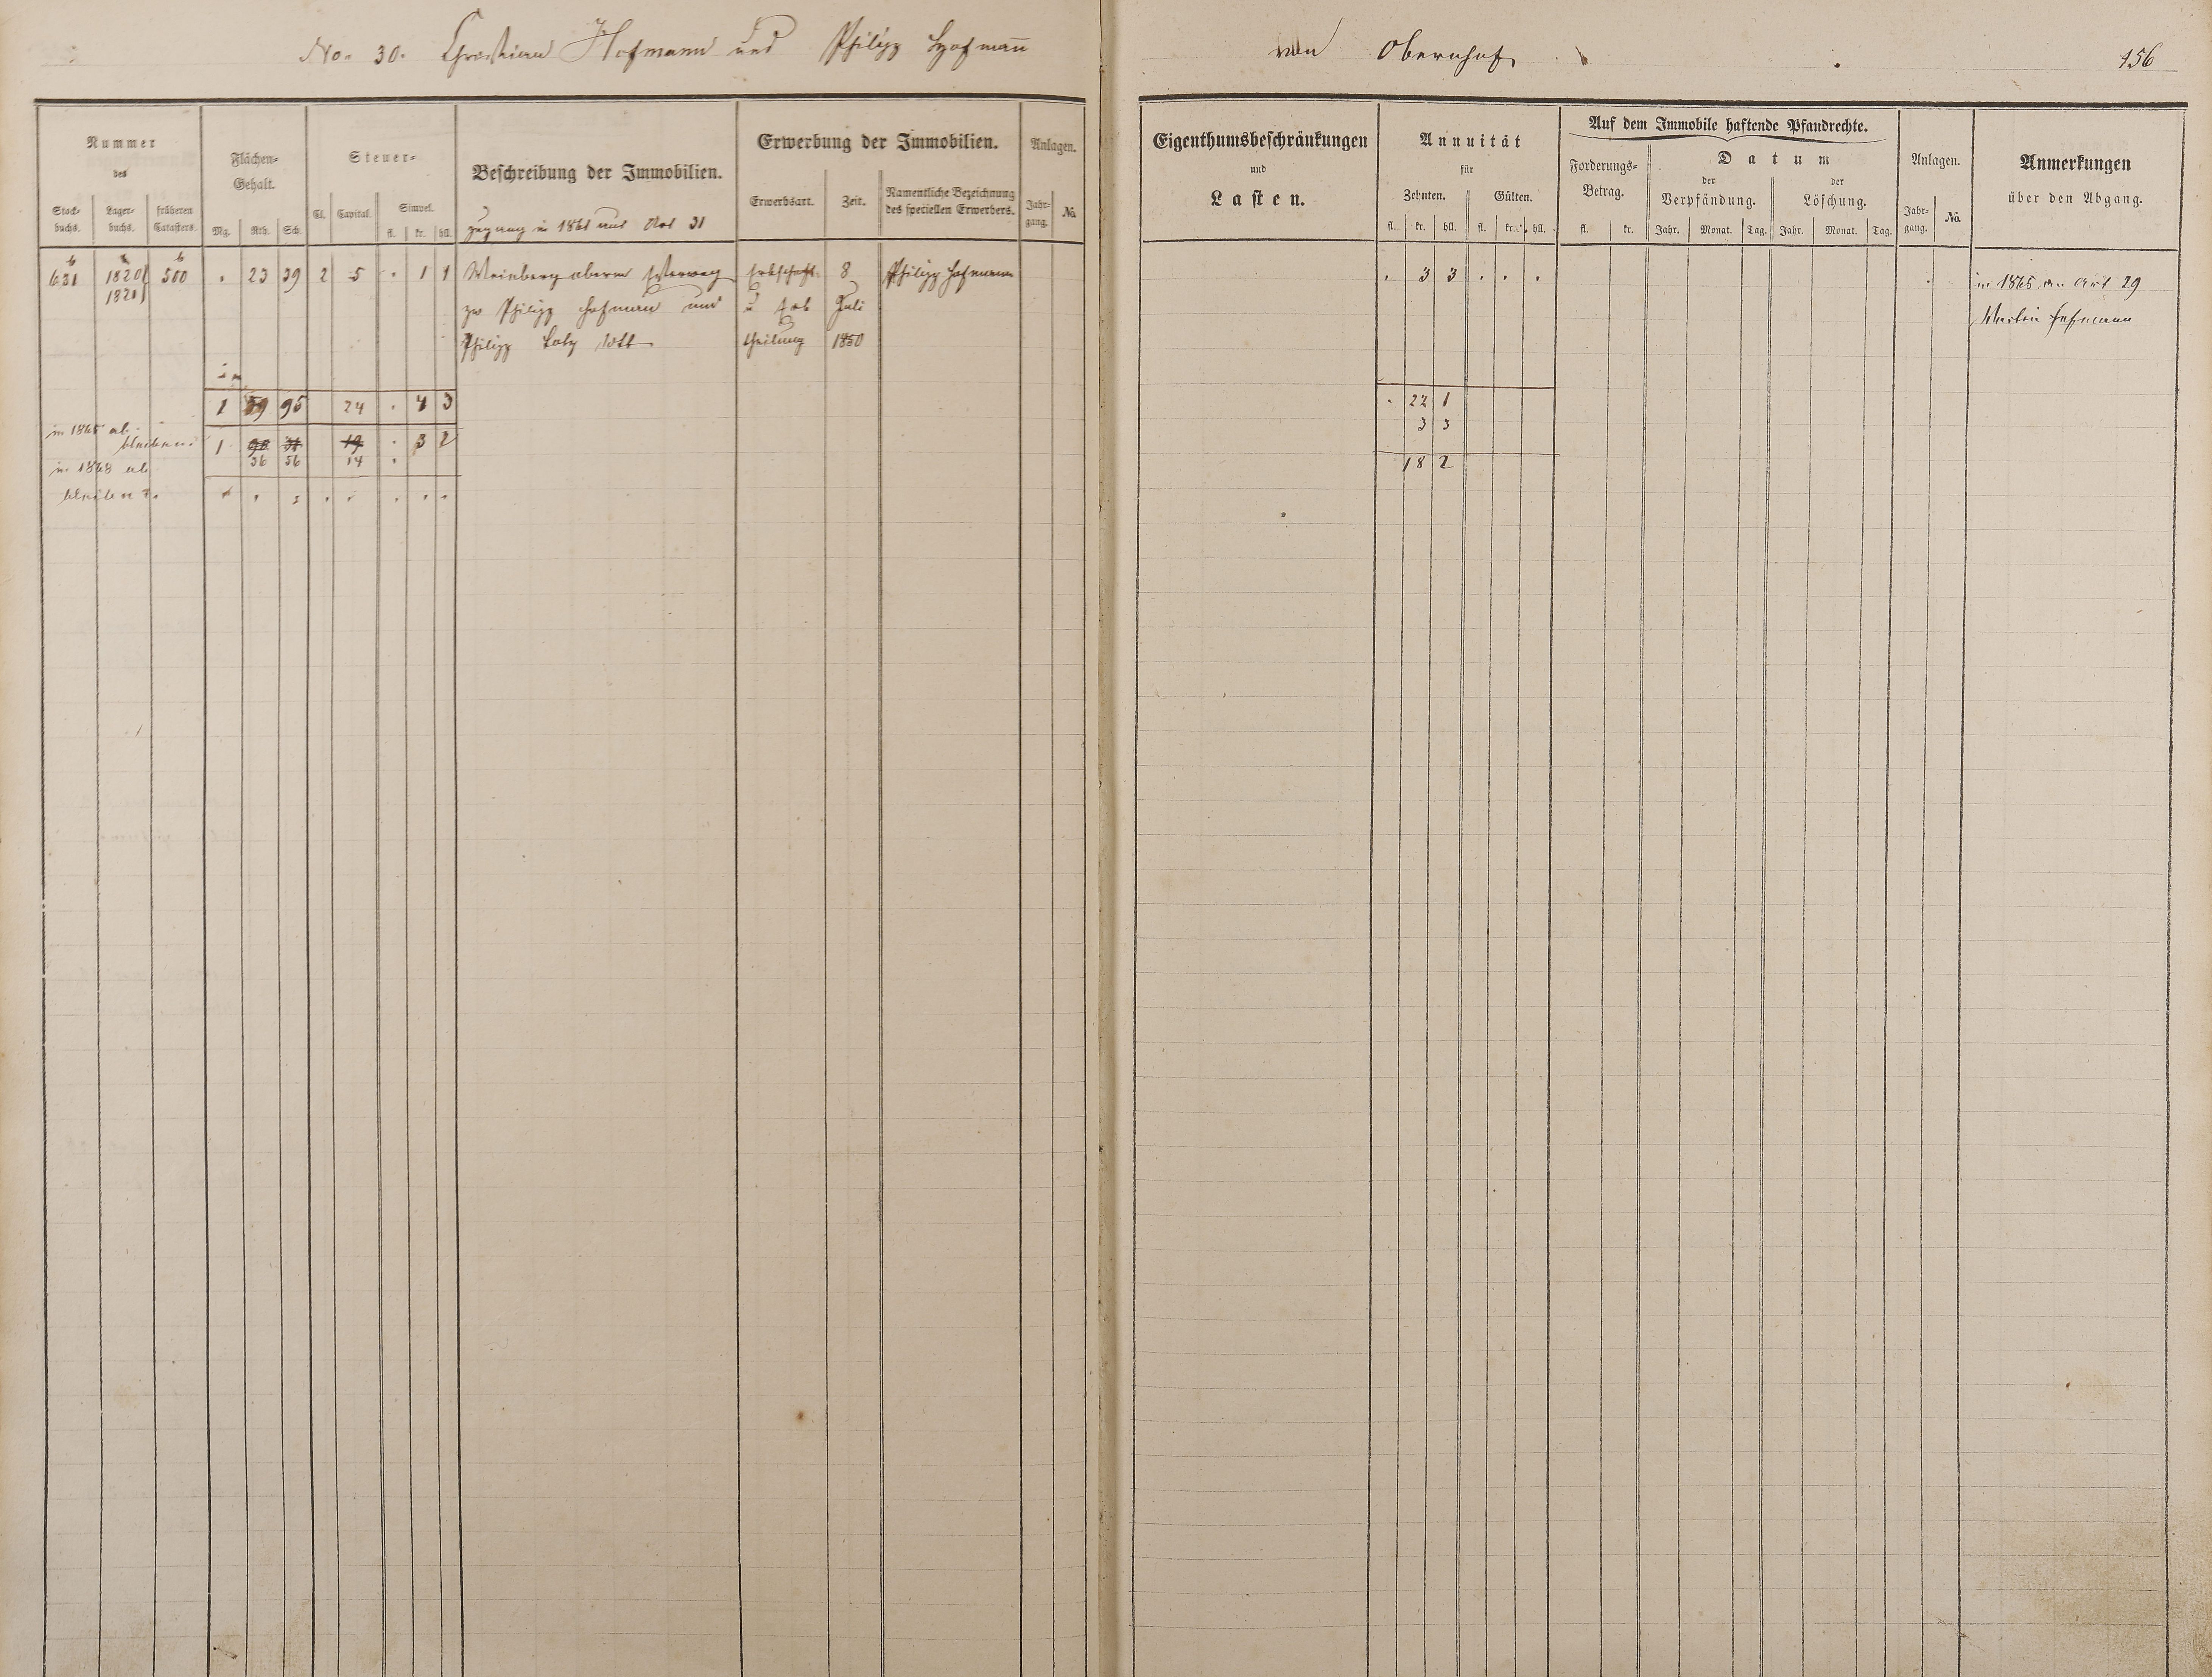 No. 30. Christian Hofmann und Philipp Hofmann
von Obernhof
156
Nummer
des
Stock-
buchs.
Lager-
buchs.
früheren
Catasters.
Flächen-
Gehalt.
Mg. Rth. Sch.
Steuer-
Cl. Capital. Simpel.
fl. kr. hll.
Beschreibung der Immobilien.
Zugang in 1861 aus Art 31
Erwerbung der Immobilien.
Erwerbsart. Zeit.
Namentliche Bezeichnung
des speciellen Erwerbers.
Anlagen.
Jahr-
gang. No.
Eigenthumsbeschränkungen
und
Lasten.
Annuität
für
Zehnten. Gülten.
fl. kr. hll. fl. kr. hll.
Auf dem Immobile haftende Pfandrechte.
Forderungs-
Betrag.
fl. kr.
Datum
der
Verpfändung.
der
Löschung.
Jahr. Monat. Tag. Jahr. Monat. Tag.
Anlagen.
Jahr-
gang. No.
Anmerkungen
über den Abgang.
b b
631 1820 500 . 23 39 2 5 . 1 1 Weinberg oberm Erbschaft 8 Philipp Hofmann . 3 3 . . . in 1865 an Art 29
1821 zw Philipp Hofmann und u Erb Juli Hofmann
Philipp theilung 1850
1 59 95 24 . 4 3 . 22 1
in 1865 ab. 3 3
bleiben 1 19 . 3 2
36 56 14 18 2
in 1868 ab
bleiben